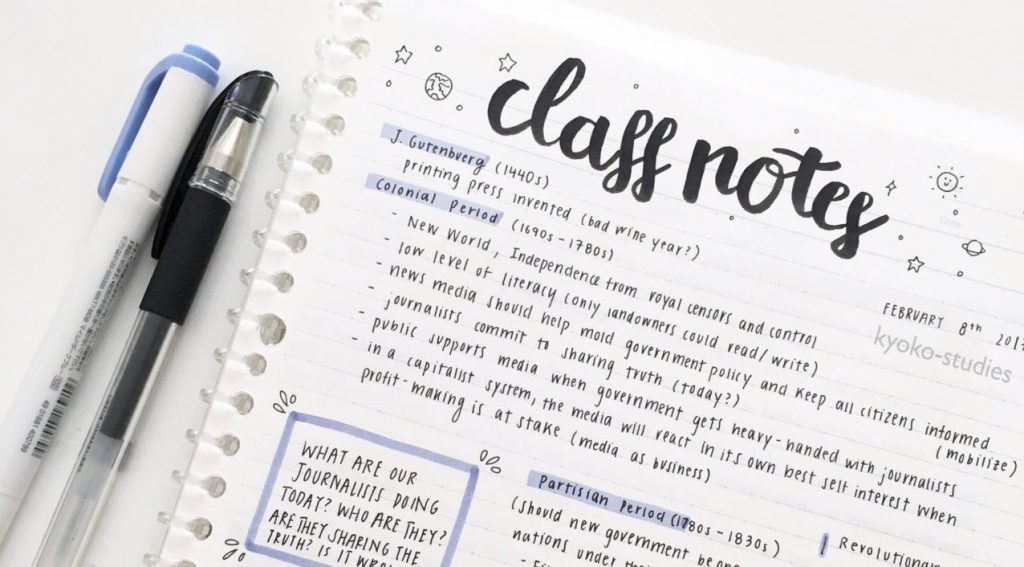 class notes
FEBRUARY 8th 2017
kyoko-studies
J. Gutenburg (1440s)
printing press invented (bad wine year?)
Colonial Period (1690s - 1780s)
- New World, Independence from royal censors and control
- low level of literacy (only landowners could read/write)
- news media should help mold government policy and keep all citizens informed
(mobilize)
- journalists commit to sharing truth (today?)
- public supports media when government gets heavy-handed with journalists
- in a capitalist system, the media will react in its own best self interest when
profit-making is at stake (media as business)
WHAT ARE OUR
JOURNALISTS DOING
TODAY? WHO ARE THEY?
ARE THEY SHARING THE
TRUTH? IS IT
Partisian Period (1780s - 1830s)
(should new government be
nations under
Revolutionary